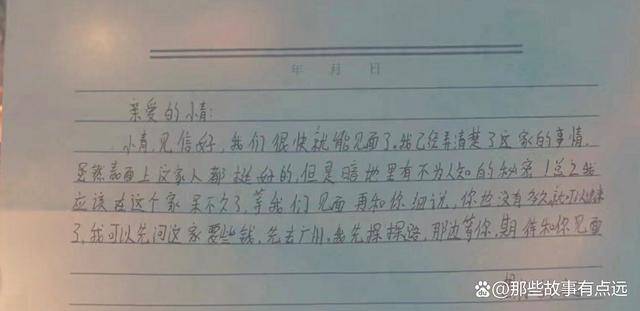 年 月 日
亲爱的小青：
小青见信好，我们很快就能见面了。我已经弄清楚了这家的事情。
虽然表面上这家人都挺好的，但是暗地里有不为人知的秘密，总之我
应该在这个家呆不久了，等我们见面再和你细说，你应没有多久就可以出来
了，我可以先问这家要些钱，先去广州，我先探探路，那边等你，期待和你见面
@那些故事有点远